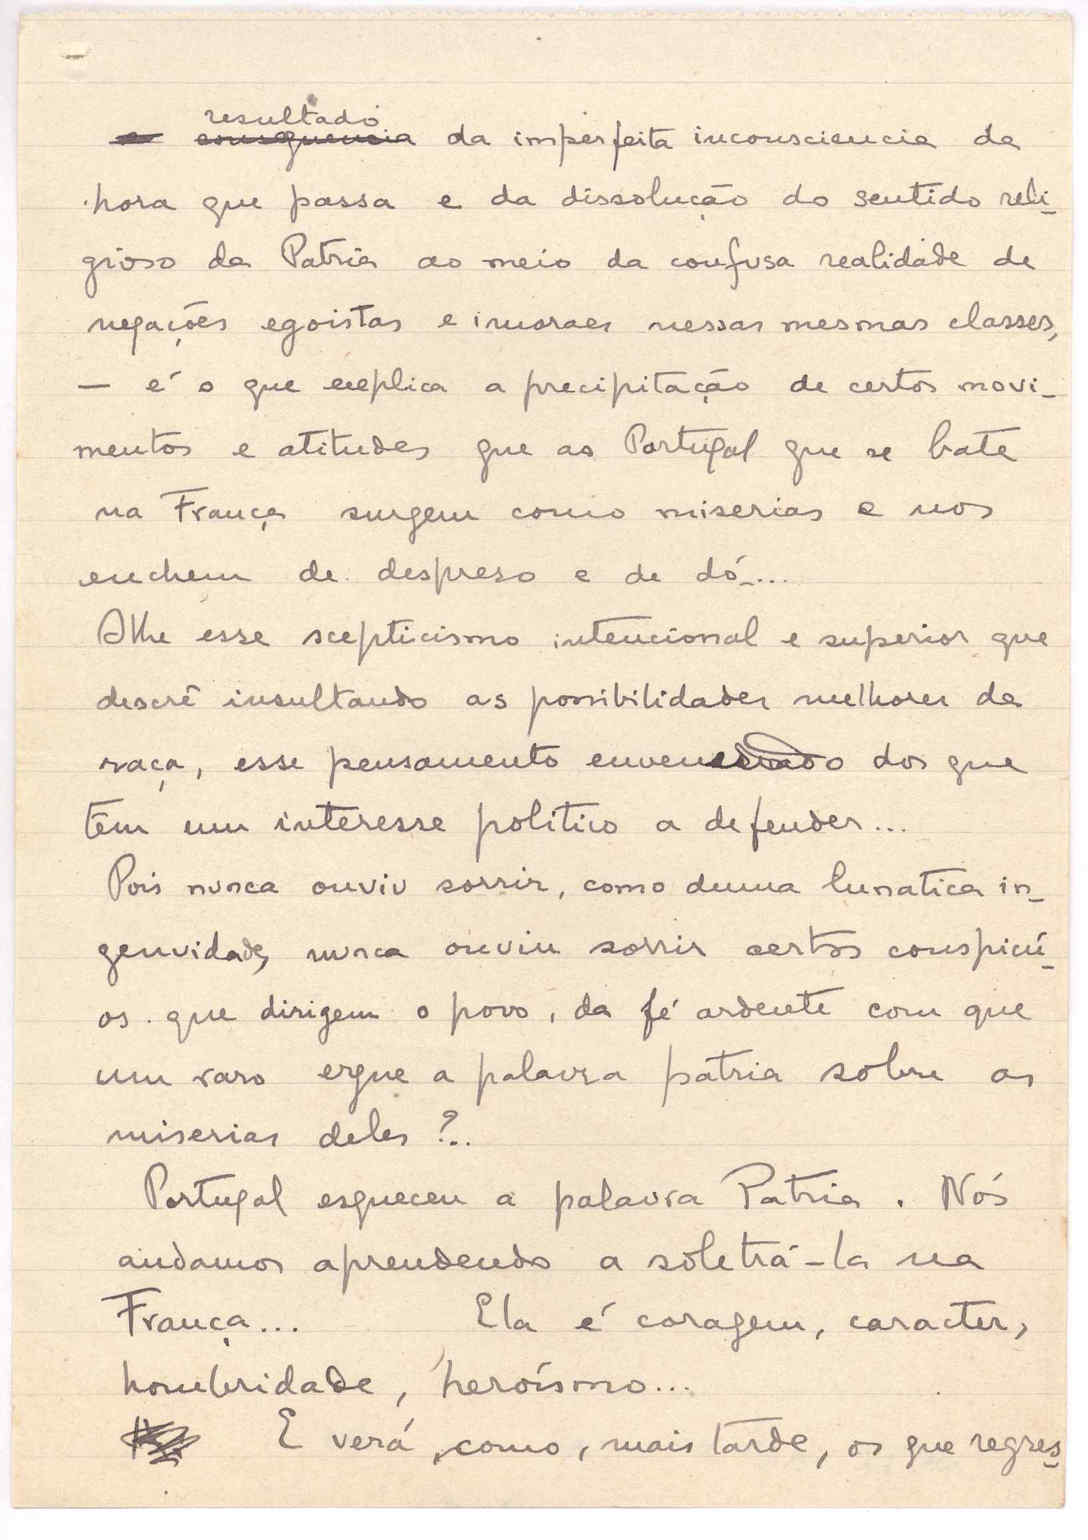 resultado
e consequencia da imperfeita inconsciencia da
hora que passa e da dissolução do sentido reli-
gioso da Patria ao meio da confusa realidade de
negações egoistas e imoraes nessas mesmas classes,
— é o que explica a precipitação de certos movi-
mentos e atitudes que ao Portugal que se bate
na França surgem como miserias e nos
enchem de despreso e de dó...
Olhe esse scepticismo intencional e superior que
descrê insultando as possibilidades melhores da
raça, esse pensamento envenenado dos que
tem um interesse politico a defender...
Pois nunca ouviu sorrir, como duma lunatica in-
genuidade, nunca ouviu sorrir certos conspicú-
os que dirigem o povo, da fé ardente com que
um raro ergue a palavra patria sobre as
miserias deles?..
Portugal esqueceu a palavra Patria. Nós
andamos aprendendo a soletrá-la na
França... Ela é coragem, caracter,
hombridade, heroísmo...
E verá, como, mais tarde, os que regres-